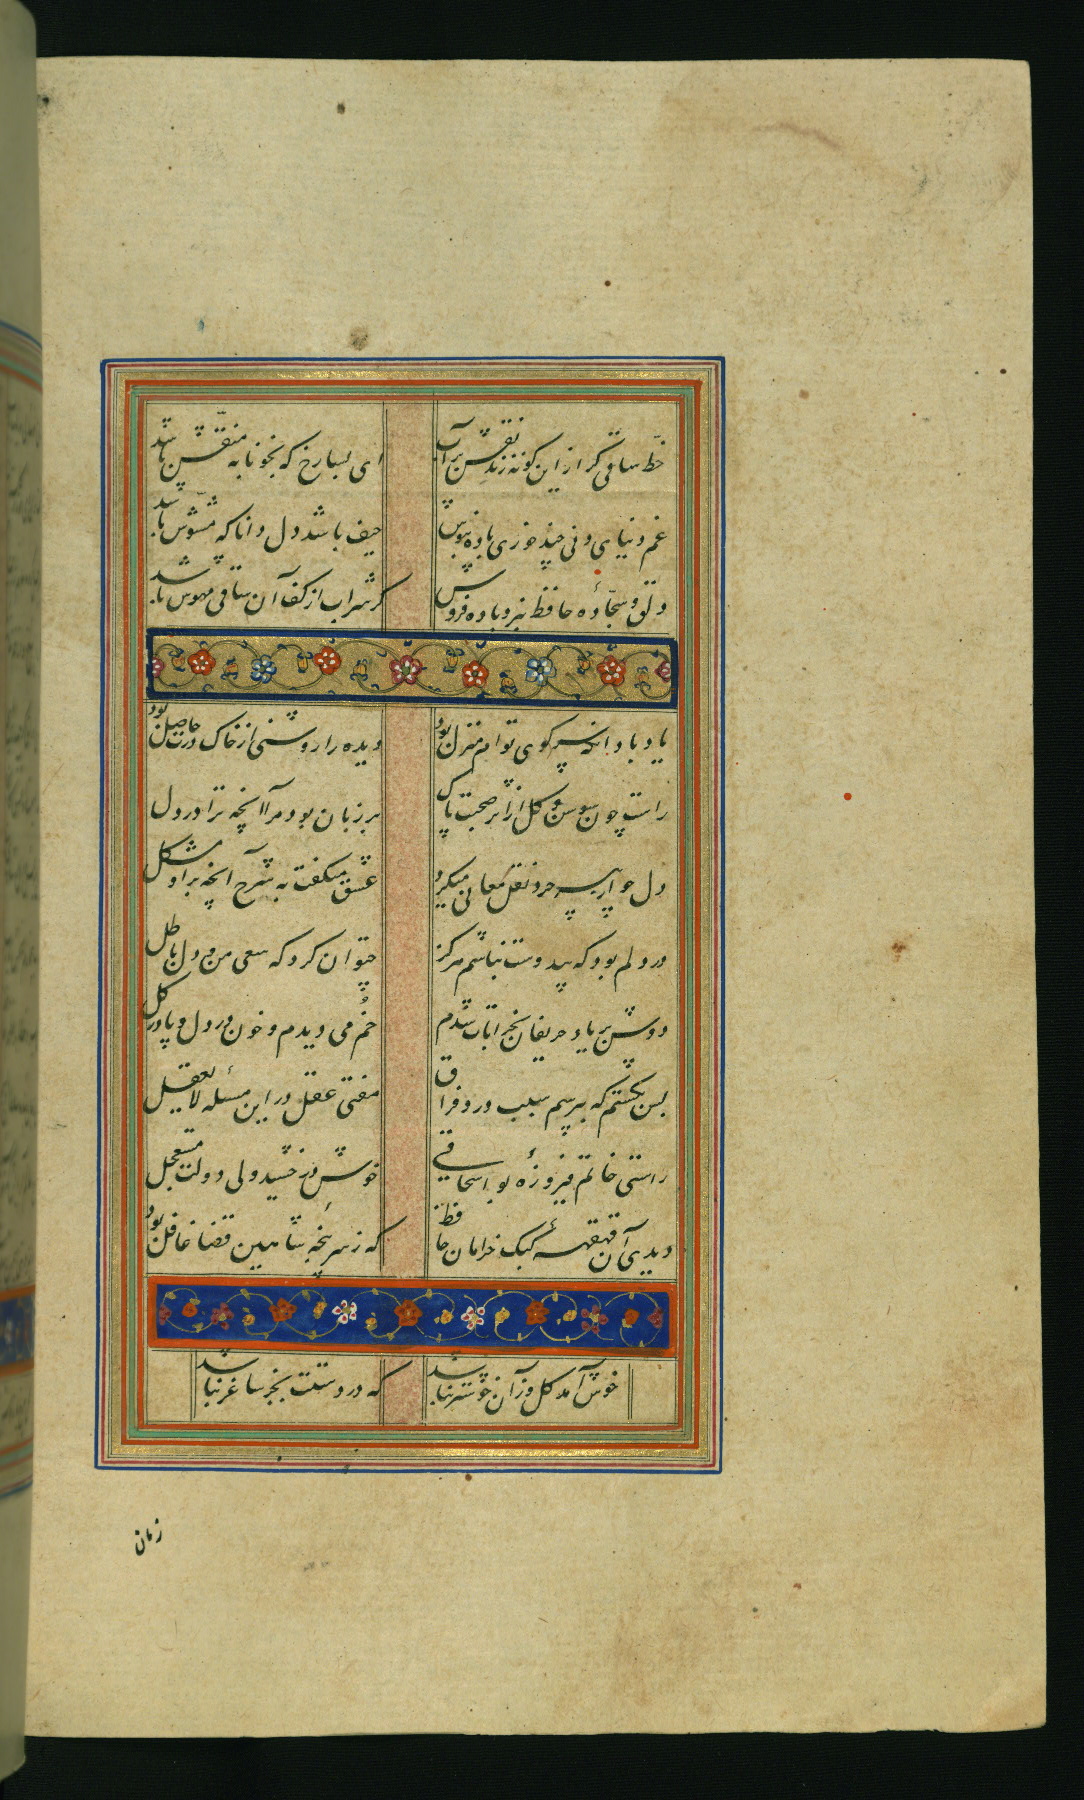 خطّ ساقی گر ازین گونه زند نقش بر آب ای بسا رخ که بخونابه منقّش باشد
غم دنیای دنی چند خوری باده بنوش حیف باشد دل دانا که مشوّش باشد
دلق و سجّادهٔ حافظ ببرد باده فروش گر شراب از کف آن ساقی مهوش باشد
یاد باد آنکه سر کوی توام منزل بود دیده را روشنی از خاک درت حاصل بود
راست چون سوسن و گل از اثر صحبت پاک بر زبان بود مرا آنچه ترا در دل
دل چو از پیر خرد نقل معانی میکرد عشق میگفت به شرح آنچه برو مشکل
در دلم بود که بیدوست نباشم هرگز چتوان کرد که سعی من و دل باطل
دوش بر یاد حریفان بخرابات شدم خُم می دیدم و خون در دل و پا در گل
بس بگشتم که بپرسم سبب درد فراق مفتی عقل در این مسئله لایعقل
راستی خاتم فیروزهٔ بواسحاقی خوش درخشید ولی دولت مستعجل
دیدی آن قهقههٔ کبک خرامان حافظ که ز سر پنجهٔ شاهین قضا غافل بود
خوش آمد گل وزآن خوشتر نباشد که در دستت بجز ساغر نباشد
زمان